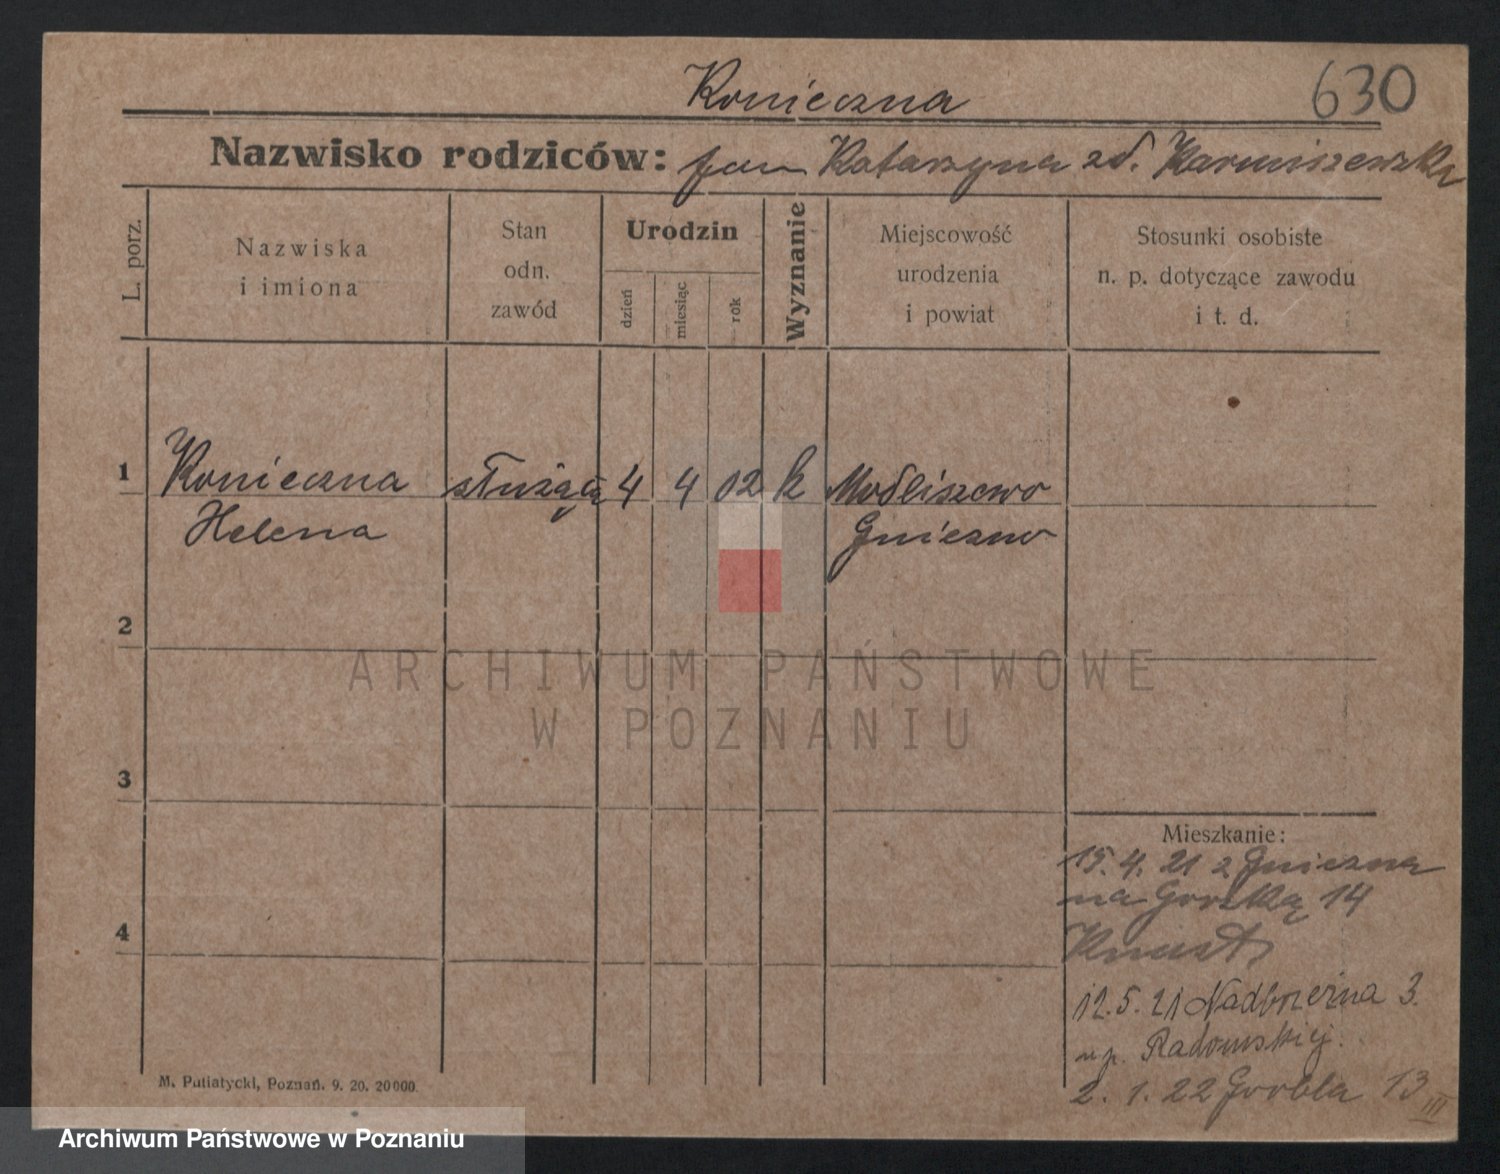 Konieczna
630
Nazwisko rodziców: Jan Katarzyna zd. Karmiszewska
L. porz.
Nazwiska
i imiona
Stan
odn.
zawód
Urodzin
dzień
miesiąc
rok
Wyznanie
Miejscowość
urodzenia
i powiat
Stosunki osobiste
n. p. dotyczące zawodu
i t. d.
1 Konieczna służąca 4 4 02 k Modliszewo
Helena Gniezno
2
ARCHIWUM PAŃSTWOWE
W POZNANIU
3
Mieszkanie:
15.4.21 z Gniezna
na Górską 14
4
12.5.21 Nadbrzeżna 3.
Radomskiej.
2.1.22 Grobla 13
III
M. Putiatycki, Poznań. 9. 20. 20000
Archiwum Państwowe w Poznaniu